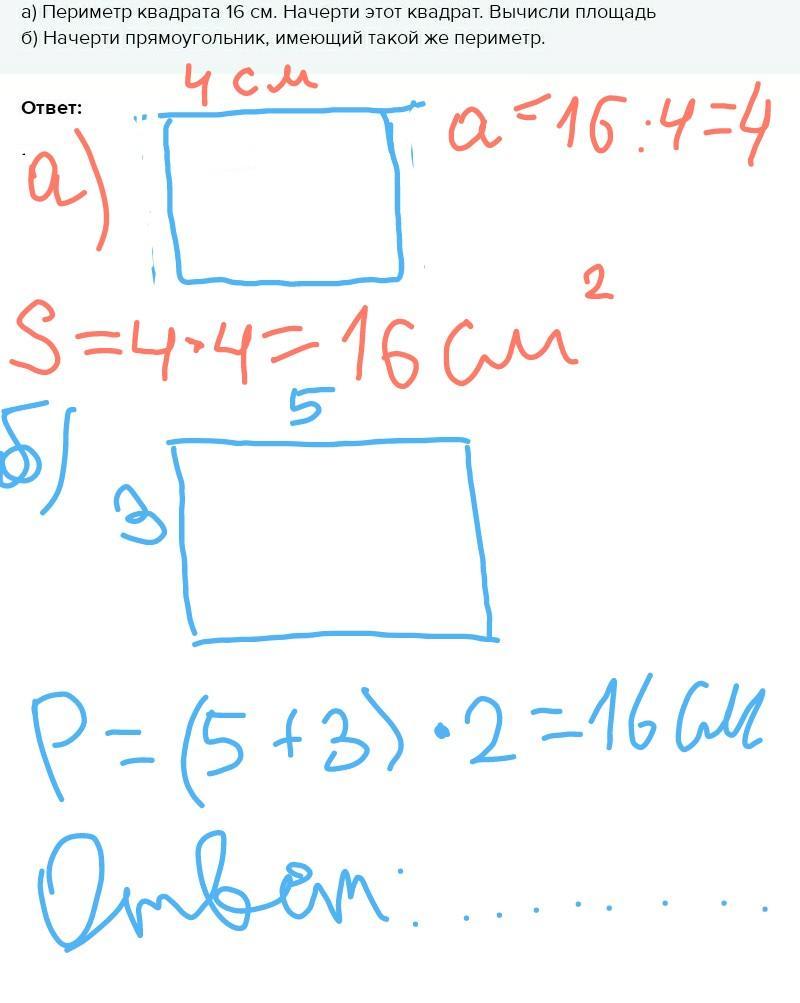 а) Периметр квадрата 16 см. Начерти этот квадрат. Вычисли площадь
б) Начерти прямоугольник, имеющий такой же периметр.
4 см
Ответ:
а)
а = 16 : 4 = 4
S = 4 · 4 = 16 см²
б)
5
3
P = (5 + 3) · 2 = 16 см
Ответ: . . . . . . . .